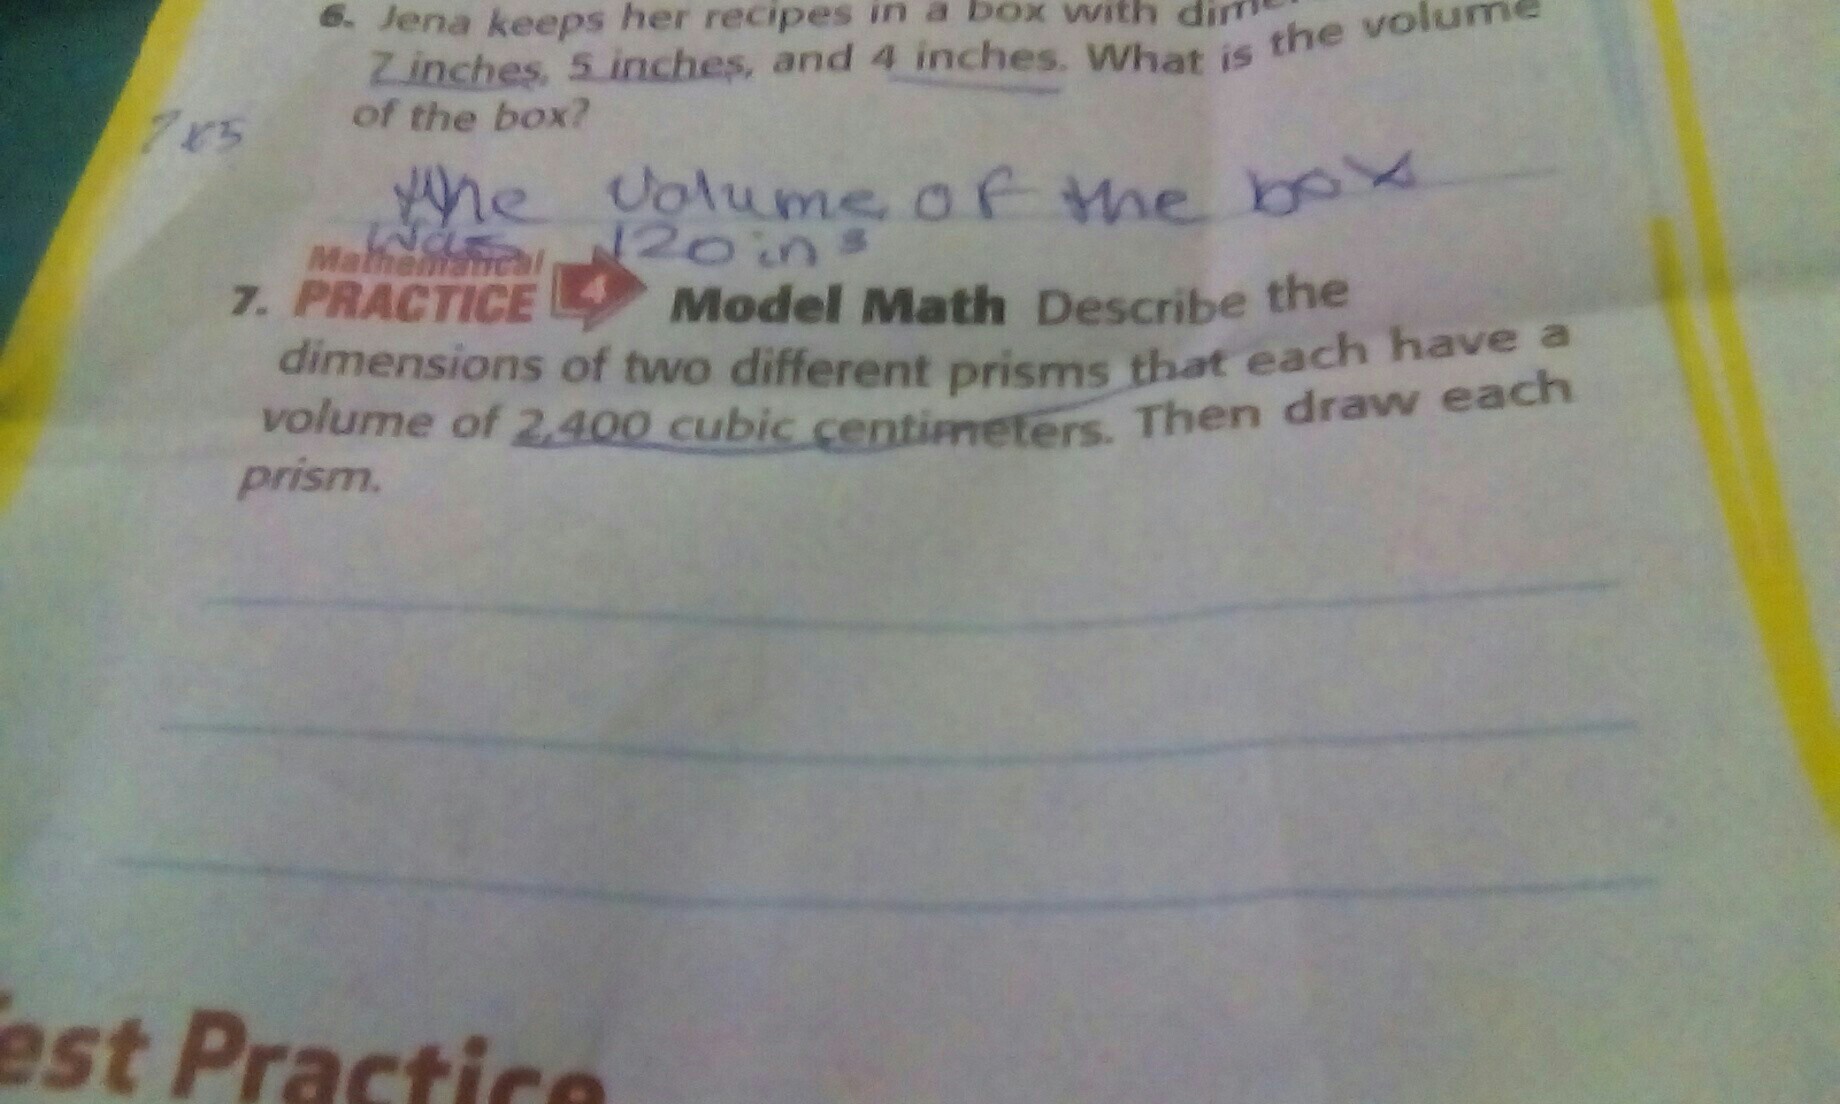 6. Jena keeps her recipes in a box with
7 inches, 5 inches, and 4 inches. What is the volume
of the box?
7x5
the volume of the box
was 120 in³
Mathematical
7. PRACTICE 4 Model Math Describe the
dimensions of two different prisms that each have a
volume of 2,400 cubic centimeters. Then draw each
prism.
est Practice